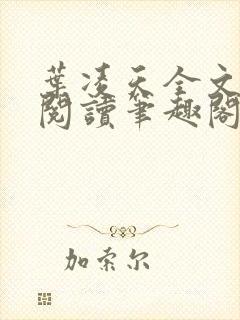 葉凌天全文
閱讀筆趣閣
加索尔